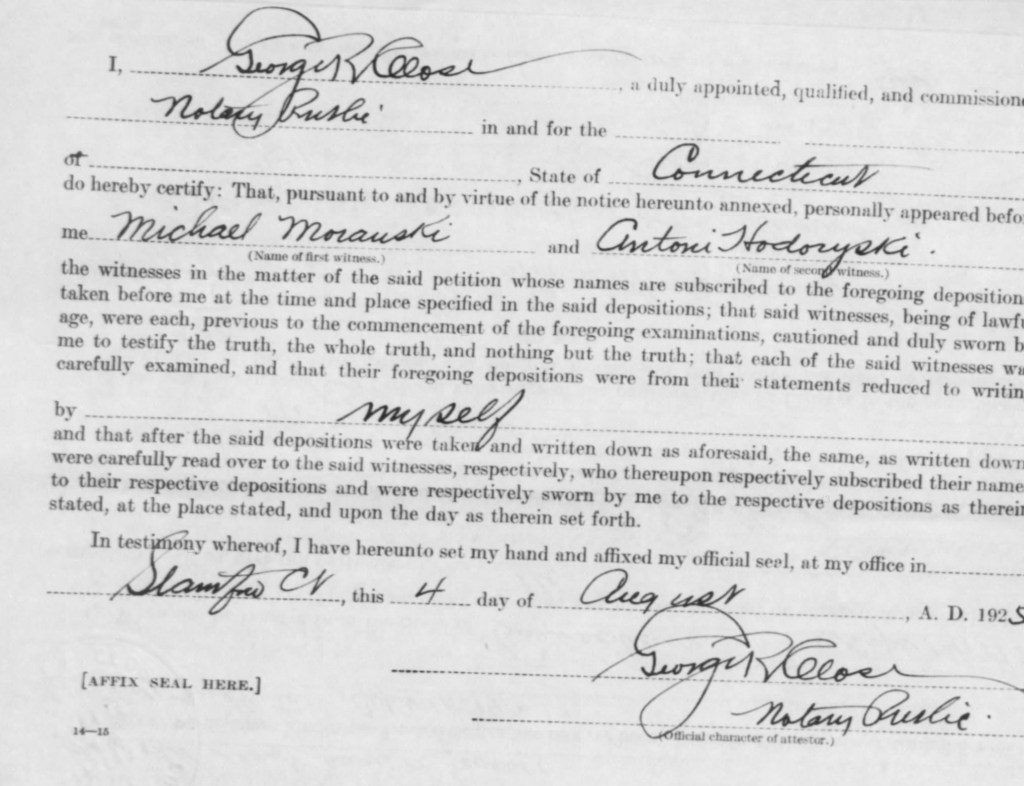 I, George R Close, a duly appointed, qualified, and commissione
Notary Public in and for the
of, State of Connecticut
do hereby certify: That, pursuant to and by virtue of the notice hereunto annexed, personally appeared befo
me Michael Morauski and Antoni Hodoryski.
(Name of first witness.) (Name of second witness.)
the witnesses in the matter of the said petition whose names are subscribed to the foregoing deposition
taken before me at the time and place specified in the said depositions; that said witnesses, being of lawfu
age, were each, previous to the commencement of the foregoing examinations, cautioned and duly sworn b
me to testify the truth, the whole truth, and nothing but the truth; that each of the said witnesses wa
carefully examined, and that their foregoing depositions were from their statements reduced to writin
by myself
and that after the said depositions were taken and written down as aforesaid, the same, as written down
were carefully read over to the said witnesses, respectively, who thereupon respectively subscribed their name
to their respective depositions and were respectively sworn by me to the respective depositions as therein
stated, at the place stated, and upon the day as therein set forth.
In testimony whereof, I have hereunto set my hand and affixed my official seal, at my office in
Stamford Ct, this 4 day of August, A. D. 1925
George R Close
[AFFIX SEAL HERE.]
Notary Public.
(Official character of attestor.)
14—15